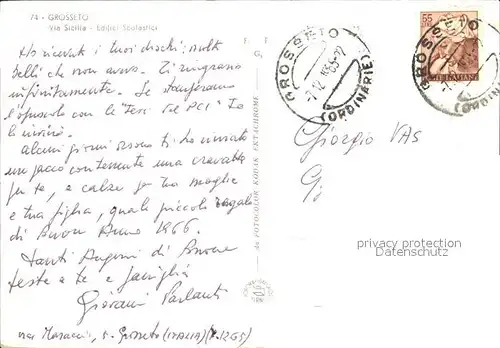 74 - GROSSETO
Via Sicilia - Edifici Scolastici
Ho ricevuto i tuoi dischi: molto
belli che non avevo. Ti ringrazio
infinitamente. Se stamperanno
l'opuscolo con le "Tesi del PCI" te
lo invierò.
Alcuni giorni or sono ti ho inviato
un pacco contenente una cravatta
per te, e calze per tua moglie
e tua figlia, quali piccoli regali
di Buon Anno 1966.
Tanti Auguri di Buone
feste a te e famiglia
Giovanni Parlanti
via 5 - Grosseto (ITALIA) (7-12-65)
4c FOTOCOLOR KODAK EKTACHROME
GROSSETO
(ORDINARIE)
55
GROSSETO
(ORDINARIE)
Giorgio VAS
privacy protection
watermark